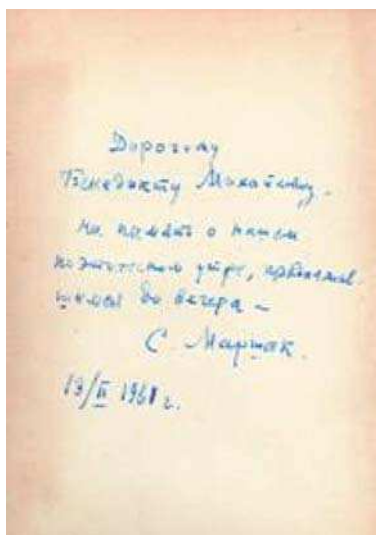 Дорогому
Бенедикту Михайловичу.
на память о нашем
поэтическом утре,
шемся до вечера –
С. Маршак.
19/II 1961 г.